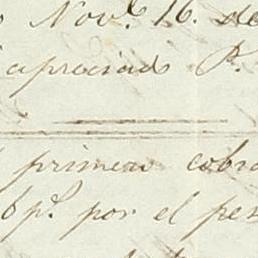 Nov.e 16. de
apreciado P.
primera cobra
6 p.s por el pes